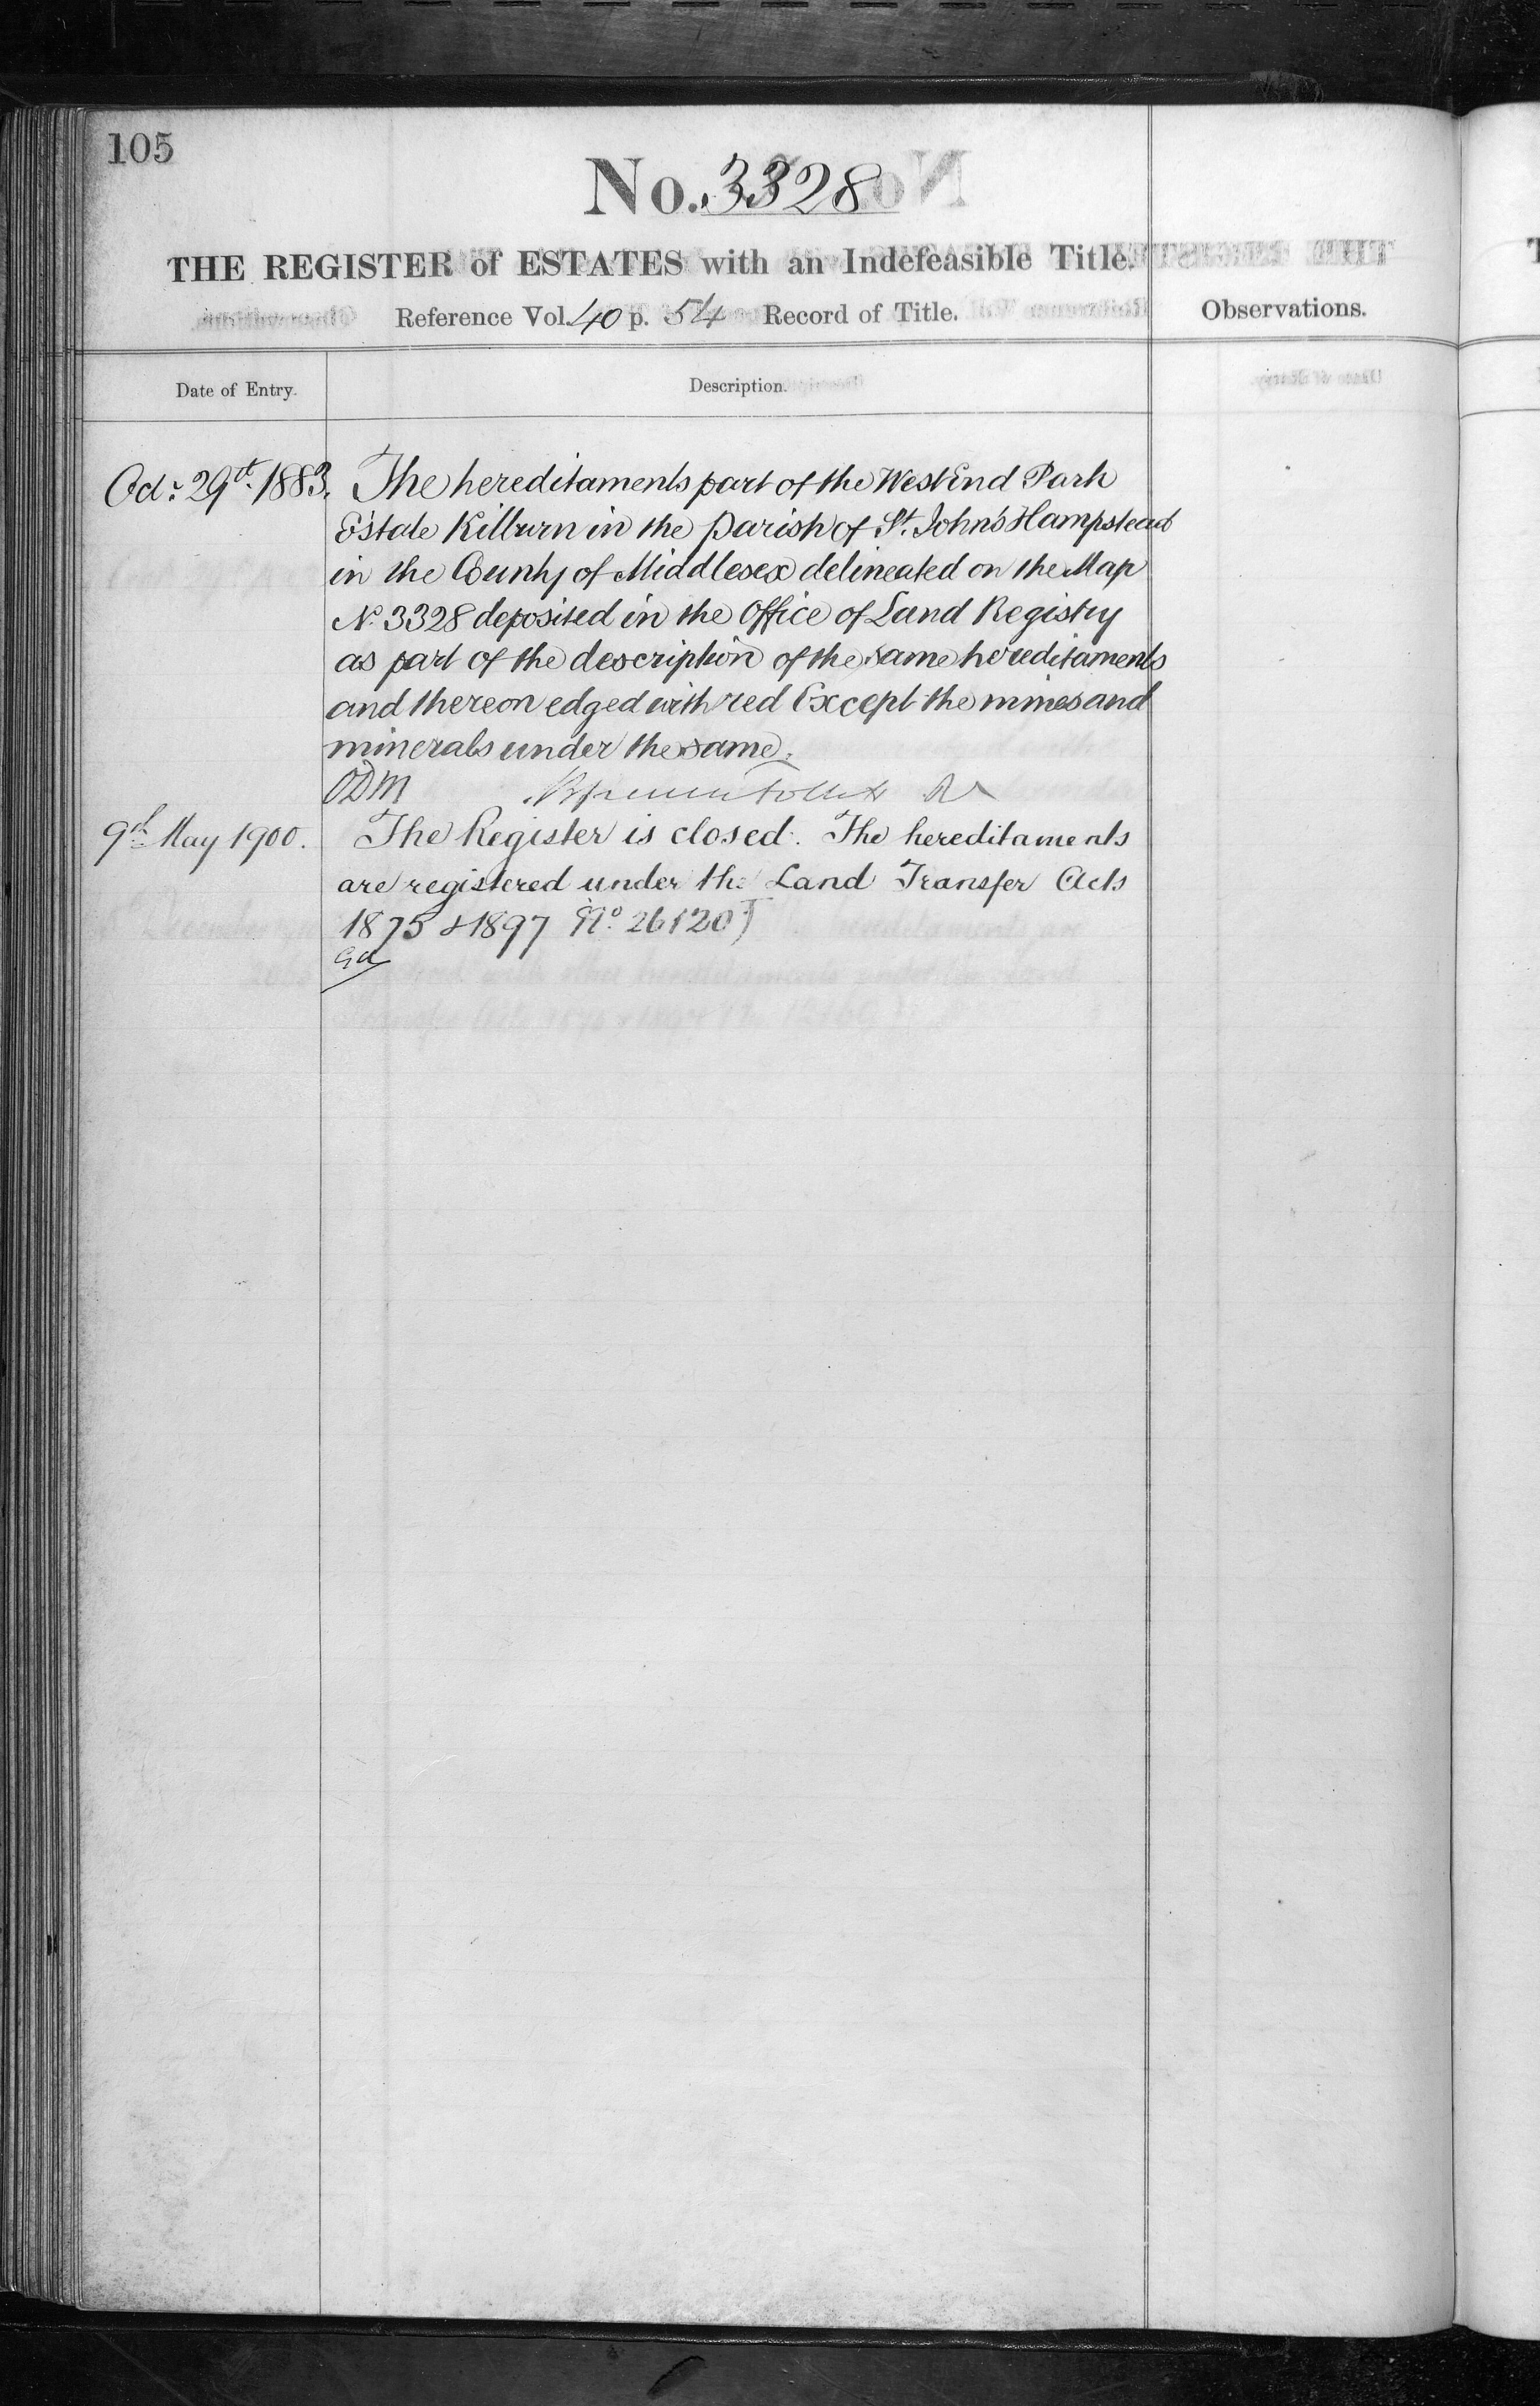 105
No. 3328
THE REGISTER of ESTATES with an Indefeasible Title.
Reference Vol. 40 p. 54 Record of Title.
Observations.
Date of Entry.
Description.
Oct. 29th. 1883. The hereditaments part of the West End Park
Estate Kilburn in the parish of St. John's Hampstead
in the County of Middlesex delineated on the Map
No. 3328 deposited in the Office of Land Registry
as part of the description of the same hereditaments
and thereon edged with red Except the mines and
minerals under the same.
ODM
9th May 1900. The Register is closed. The hereditaments
are registered under the Land Transfer Acts
1875 & 1897 No.